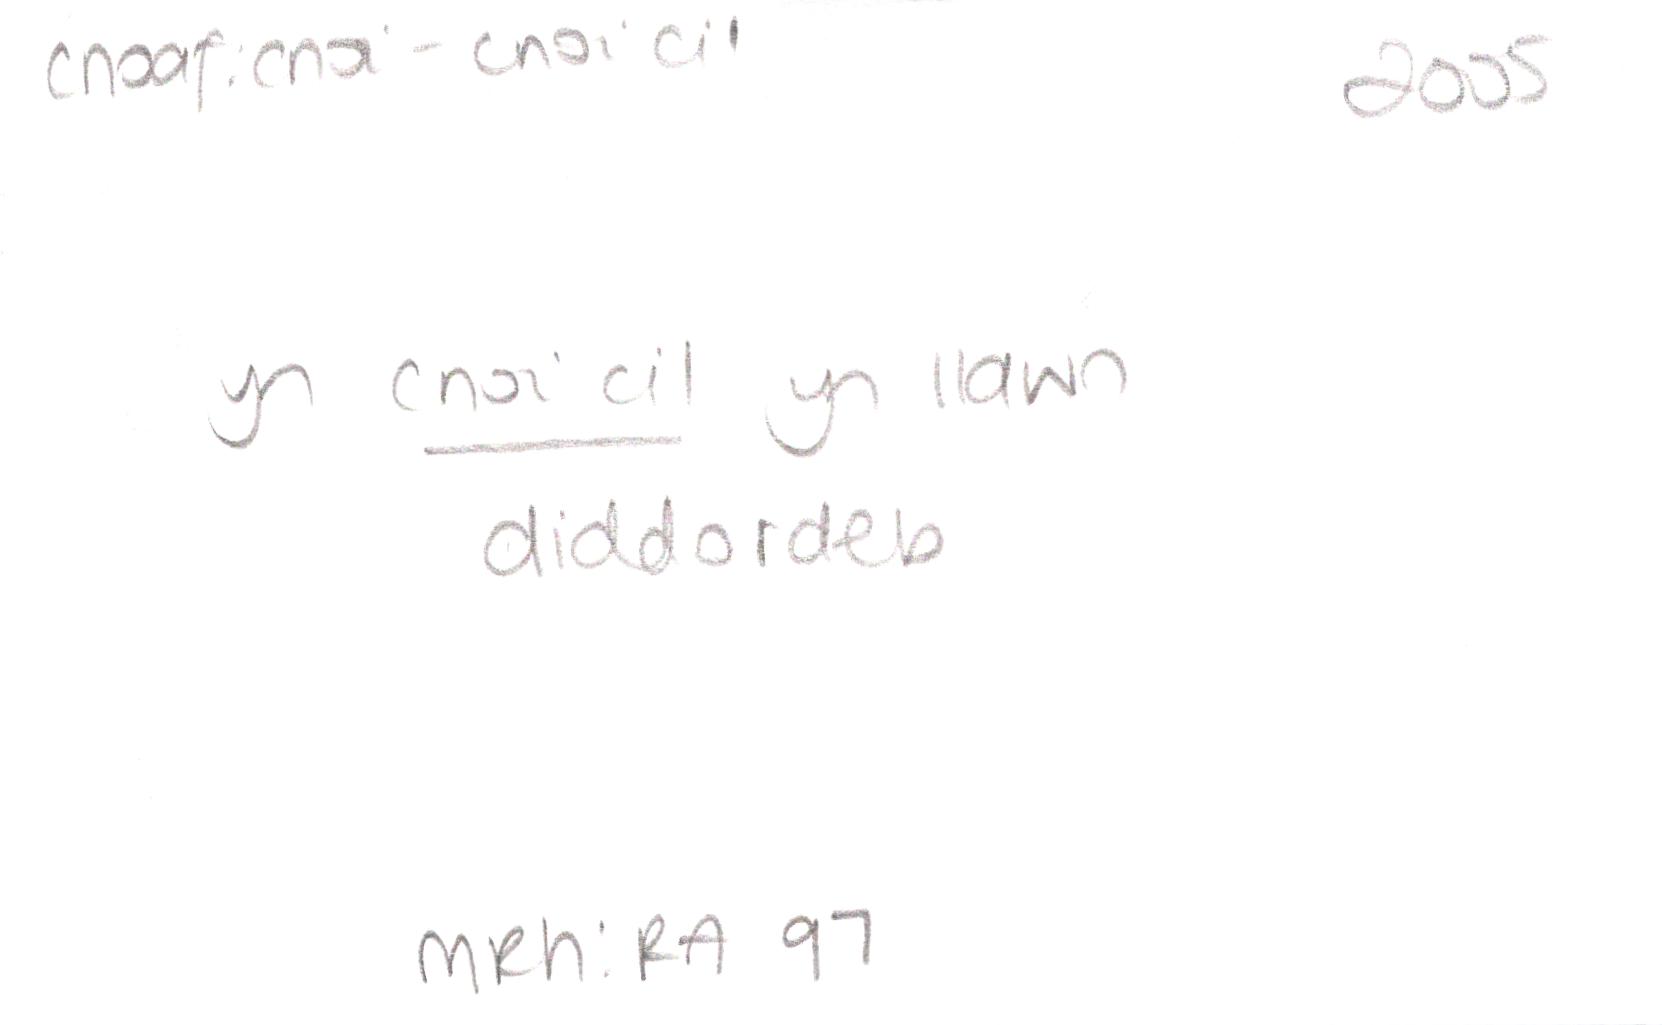 cnoaf: cnoi - cnoi cil 2005
yn cnoi cil yn llawn
diddordeb
MRh: RA 97